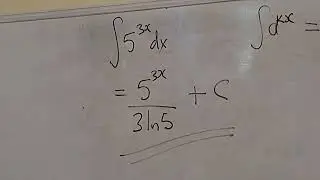 ∫5^{3x} dx
= \frac{5^{3x}}{3 ln 5} + C
∫a^{kx} =